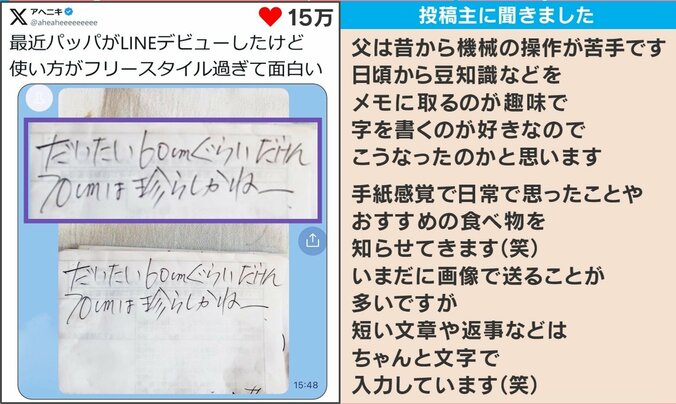 アヘニキ
@aheaheeeeeeeee
15万
最近パッパがLINEデビューしたけど
使い方がフリースタイル過ぎて面白い
だいたい60cmぐらいだけん
70cmは珍らしかねー
だいたい60cmぐらいだけん
70cmは珍らしかねー
15:48
投稿主に聞きました
父は昔から機械の操作が苦手です
日頃から豆知識などを
メモに取るのが趣味で
字を書くのが好きなので
こうなったのかと思います
手紙感覚で日常で思ったことや
おすすめの食べ物を
知らせてきます(笑)
いまだに画像で送ることが
多いですが
短い文章や返事などは
ちゃんと文字で
入力しています(笑)